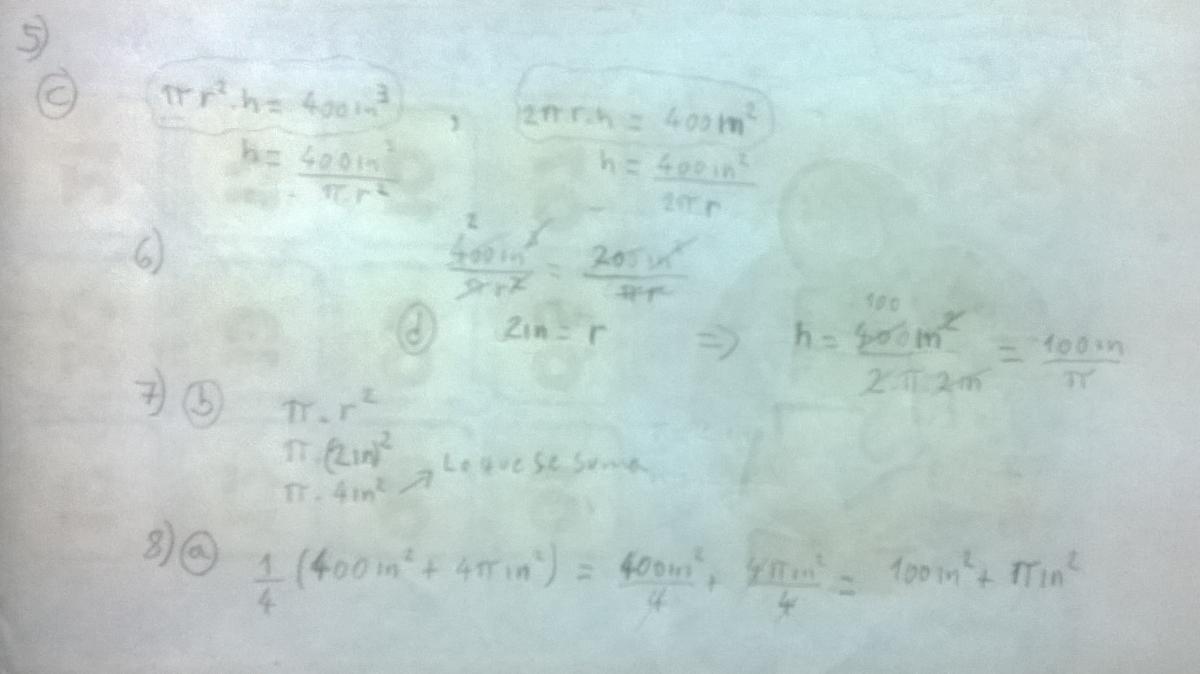 5)
c) πr²·h = 400in³ , 2πr·h = 400in²
h = 400in³/πr² h = 400in²/2πr
6) 400in³/πr² = 200in²/πr
2
d) 2in = r ⇒ h = 400in²/2·π·2in = 100in/π
100
7) b) π·r²
π·(2in)²
π·4in² ↗ Lo que se suma
8) a) 1/4 (400in² + 4πin²) = 400in²/4 + 4πin²/4 = 100in² + πin²